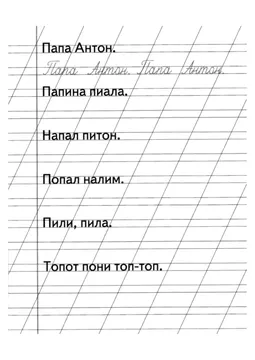 Папа Антон.
Папа Антон. Папа Антон.
Папина пиала.
Напал питон.
Попал налим.
Пили, пила.
Топот пони топ-топ.